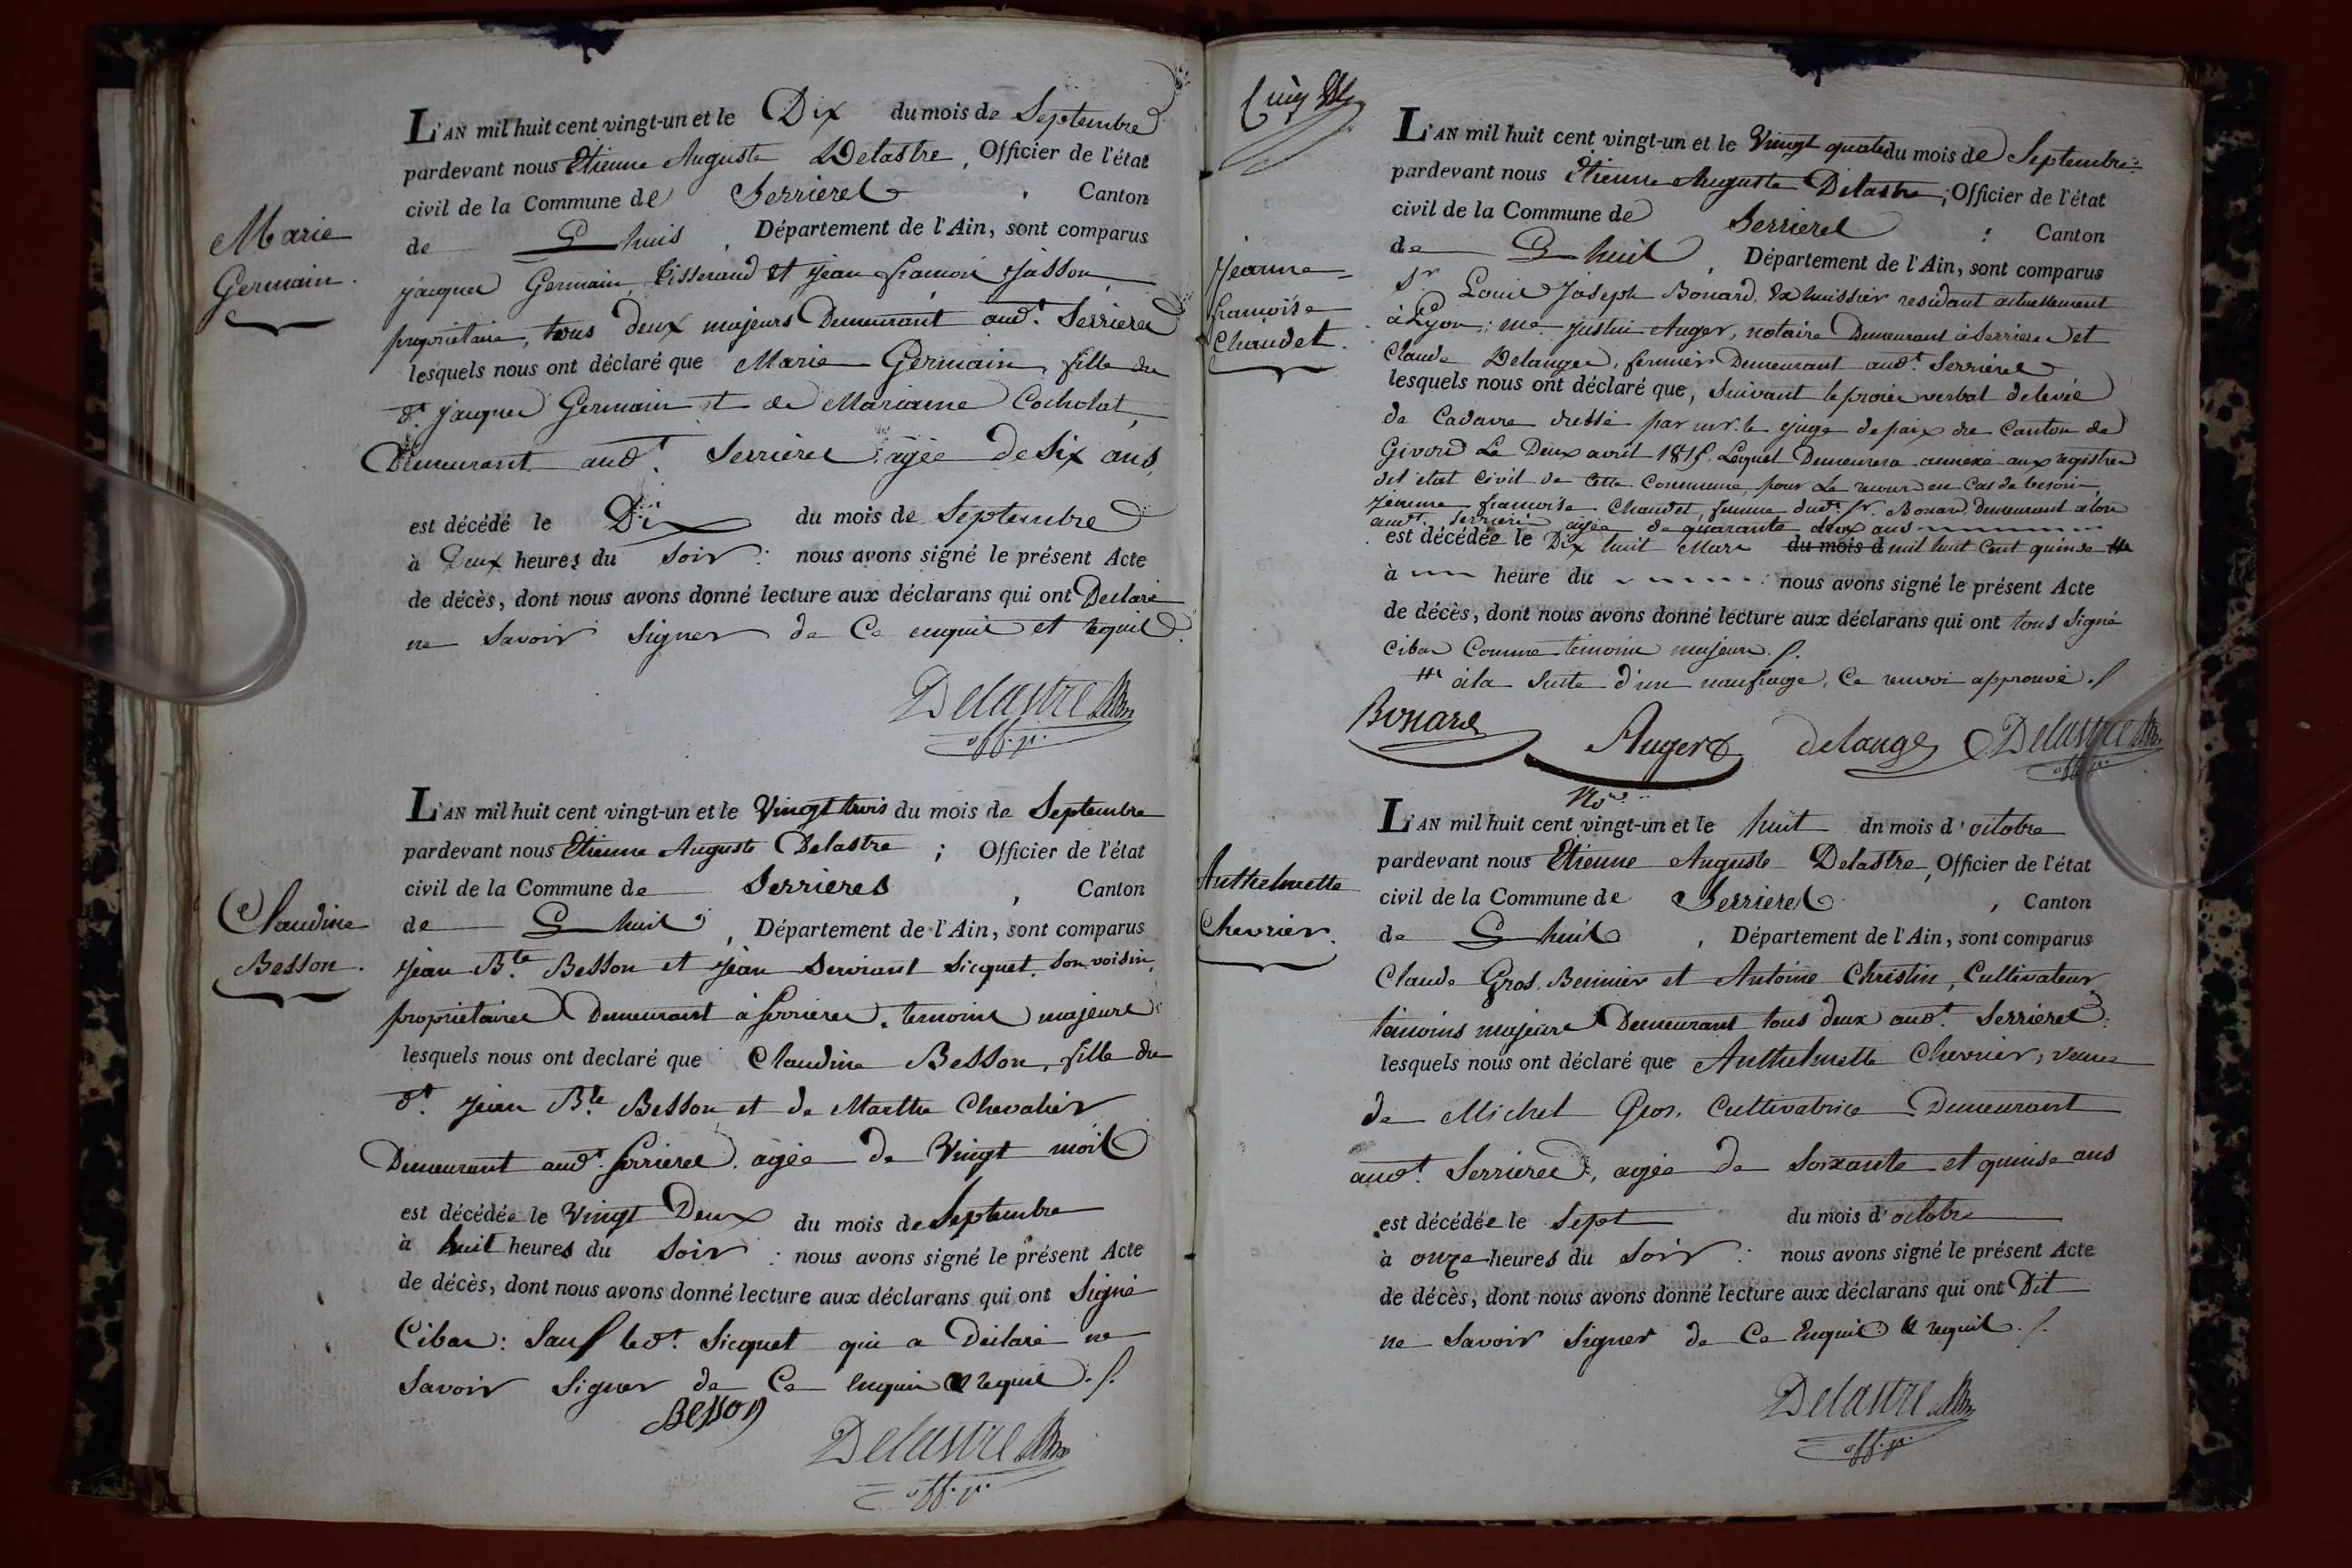 L'AN mil huit cent vingt-un et le Dix du mois de Septembre
pardevant nous Etienne Auguste Delastre, Officier de l'état
civil de la Commune de Serrieres, Canton
de L'huis, Département de l'Ain, sont comparus
Marie
Germain.
jacques Germain, tisserand et jean francois Jasson,
propriétaire, tous deux majeurs Demeurant aud.t Serrieres
lesquels nous ont déclaré que Marie Germain, fille du
d.t jacques Germain et de Marianne Cocholat,
Demeurant aud.t Serrieres, agée de Six ans,
est décédé le Dix du mois de Septembre
à Deux heures du Soir : nous avons signé le présent Acte
de décès, dont nous avons donné lecture aux déclarans qui ont Declaré
ne Savoir Signer de Ce enquis et requis.
Delastre
off. p.
L'AN mil huit cent vingt-un et le Vingt trois du mois de Septembre
pardevant nous Etienne Auguste Delastre ; Officier de l'état
civil de la Commune de Serrieres, Canton
de L'huis, Département de l'Ain, sont comparus
Claudine
Besson.
jean B.te Besson et jean Servient Sicquet, Son voisin,
propriétaires Demeurant à Serrieres, temoins majeurs
lesquels nous ont declaré que Claudine Besson, fille du
d.t jean B.te Besson et de Marthe Chevalier
Demeurant aud.t Serrieres, agée de Vingt mois
est décédée le Vingt Deux du mois de Septembre
à huit heures du Soir : nous avons signé le présent Acte
de décès, dont nous avons donné lecture aux déclarans qui ont Signé
Cibas : Sauf led.t Sicquet qui a Déclaré ne
Savoir Signer de Ce enquis et requis ./.
Besson
Delastre
off. p.
Cinq
L'AN mil huit cent vingt-un et le Vingt quatre du mois de Septembre
pardevant nous Etienne Auguste Delastre; Officier de l'état
civil de la Commune de Serrieres : Canton
de L'huis, Département de l'Ain, sont comparus
Jeanne
francoise
Chaudet.
S.r Louis Joseph Bonard, Ex huissier residant actuellement
à Lyon; me. justin Auger, notaire Demeurant à Serrieres et
Claude Delanges, fermier Demeurant aud.t Serrieres
lesquels nous ont déclaré que, Suivant le procès verbal delevée
de Cadavre dressé par mr. le juge de paix du Canton de
Givors Le Deux avril 1815, Lequel Demeurera annexé aux registres
del'etat Civil de Cette Commune, pour Le recours en Cas de besoin,
Jeanne francoise Chaudet, femme dud.t Sr. Bonard, demeurant alors
aud.t Serrieres agée de quarante deux ans
est décédée le Dix huit Mars du mois d mil huit Cent quinse #
à heure du : nous avons signé le présent Acte
de décès, dont nous avons donné lecture aux déclarans qui ont tous Signé
Cibas Comme temoins majeurs ./.
# à la Suite d'un naufrage, Ce renvoi approuvé ./
Bonard Auger delange Delastre
No.re off. p.
L'AN mil huit cent vingt-un et le huit dn mois d'octobre
pardevant nous Etienne Auguste Delastre, Officier de l'état
civil de la Commune de Serrieres, Canton
de L'huis, Département de l'Ain, sont comparus
Anthelmette
Chevrier.
Claude Gros Bennier et Antoine Christin, Cultivateurs
témoins majeurs Demeurant tous deux aud.t Serrieres
lesquels nous ont déclaré que Anthelmette Chevrier, veuve
de Michel Gros, Cultivatrice Demeurant
aud.t Serrieres, agée de Soixante et quinse ans
est décédée le Sept du mois d'octobre
à onze heures du Soir : nous avons signé le présent Acte
de décès, dont nous avons donné lecture aux déclarans qui ont Dit
ne Savoir Signer de Ce Enquis & requis ./.
Delastre
off. p.